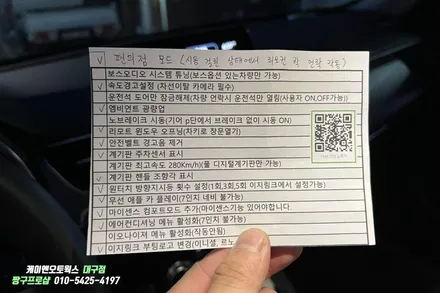 편의점 모드 (시동 걸린 상태에서 리모컨 락 언락 작동)
보스오디오 시스템 튜닝(보스옵션 있는차량만 가능)
속도경고설정 (차선이탈 카메라 필수)
운전석 도어만 잠금해제(차량 언락시 운전석만 열림(사용자 ON,OFF가능))
엠비언트 광량업
노브레이크 시동(기어 p단에서 브레이크 없이 시동 ON)
리모트 윈도우 오프닝(차키로 창문열기)
안전벨트 경고음 제거
계기판 주차센서 표시
계기판 최고속도 280Km/h(풀 디지털계기판만 가능)
계기판 핸들 조향각 표시
원터치 방향지시등 횟수 설정(1회,3회,5회 이지링크에서 설정가능)
무선 애플 카 플레이(7인치 네비 불가능)
마이센스 컴포트모드 추가(마이센스기능 있어야합니다.
에어컨디셔닝 메뉴 활성화(7인치 불가능)
이오나이저 메뉴 활성화(작동안됨)
이지링크 부팅로고 변경(이니셜, 르노
케이엔오토웍스 대구점
짱구프로샵 010-5425-4197